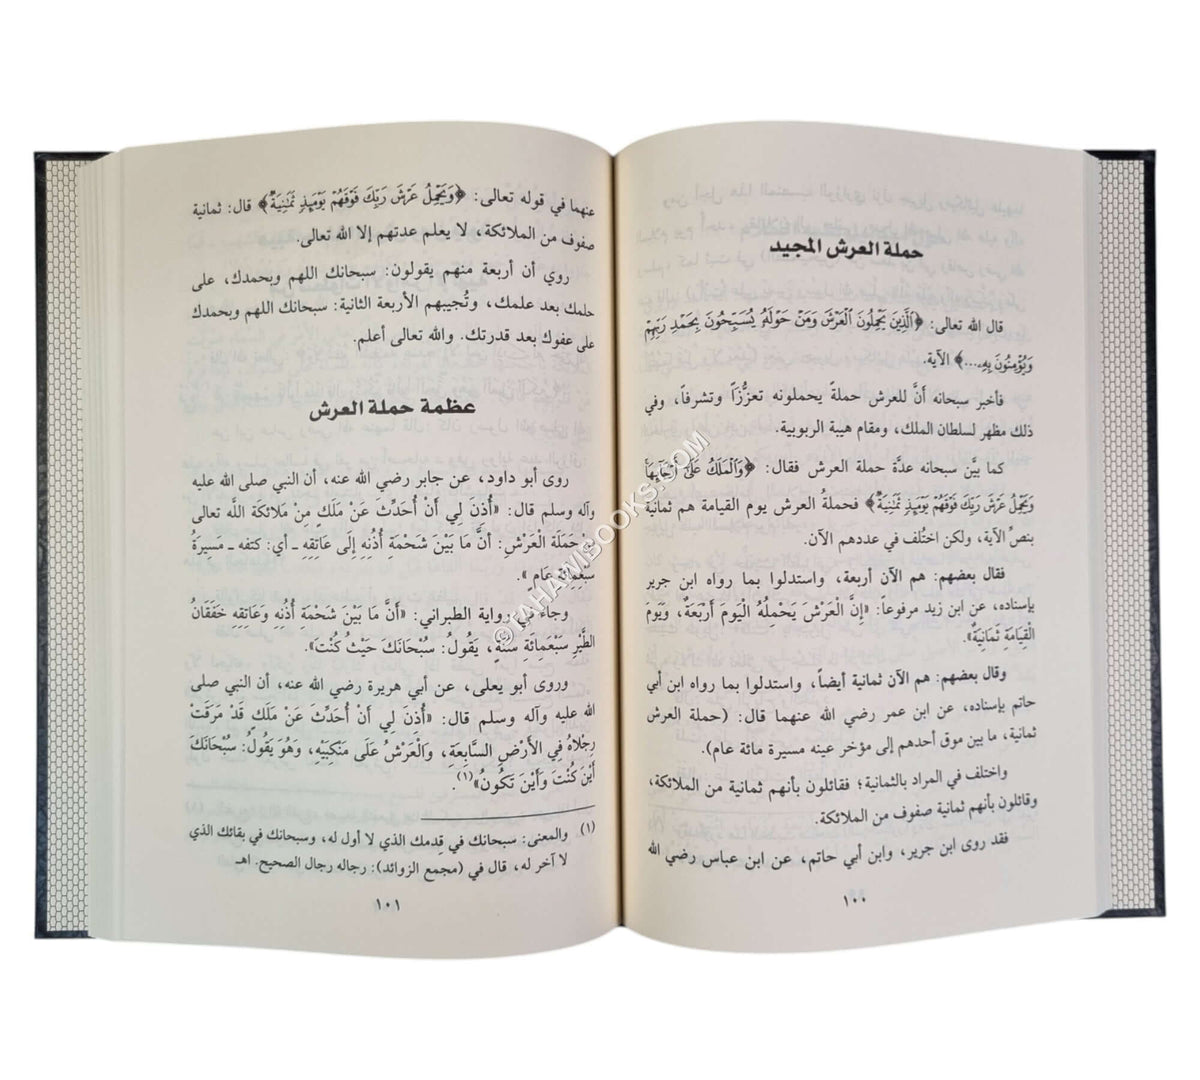 حملة العرش المجيد
قال الله تعالى: ﴿الَّذِينَ يَحْمِلُونَ الْعَرْشَ وَمَنْ حَوْلَهُ يُسَبِّحُونَ بِحَمْدِ رَبِّهِمْ
وَيُؤْمِنُونَ بِهِ...﴾ الآية.
فأخبر سبحانه أنَّ للعرش حملةً يحملونه تعزُّزاً وتشرفاً، وفي
ذلك مظهر لسلطان الملك، ومقام هيبة الربوبية.
كما بيَّن سبحانه عدَّة حملة العرش فقال: ﴿وَالْمَلَكُ عَلَىٰ أَرْجَائِهَا
وَيَحْمِلُ عَرْشَ رَبِّكَ فَوْقَهُمْ يَوْمَئِذٍ ثَمَٰنِيَةٌ﴾ فحملةُ العرش يوم القيامة هم ثمانية
بنصِّ الآية، ولكن اختُلف في عددهم الآن.
فقال بعضهم: هم الآن أربعة، واستدلوا بما رواه ابن جرير
بإسناده، عن ابن زيد مرفوعاً: «إِنَّ الْعَرْشَ يَحْمِلُهُ الْيَوْمَ أَرْبَعَةٌ، وَيَوْمَ
الْقِيَامَةِ ثَمَانِيَةٌ».
وقال بعضهم: هم الآن ثمانية أيضاً، واستدلوا بما رواه ابن أبي
حاتم بإسناده، عن ابن عمر رضي الله عنهما قال: (حملة العرش
ثمانية، ما بين موق أحدهم إلى مؤخر عينه مسيرة مائة عام).
واختلف في المراد بالثمانية؛ فقائلون بأنهم ثمانية من الملائكة،
وقائلون بأنهم ثمانية صفوف من الملائكة.
فقد روى ابن جرير، وابن أبي حاتم، عن ابن عباس رضي الله
١٠٠
عنهما في قوله تعالى: ﴿وَيَحْمِلُ عَرْشَ رَبِّكَ فَوْقَهُمْ يَوْمَئِذٍ ثَمَٰنِيَةٌ﴾ قال: ثمانية
صفوف من الملائكة، لا يعلم عدتهم إلا الله تعالى.
روي أن أربعة منهم يقولون: سبحانك اللهم وبحمدك، على
حلمك بعد علمك، وتُجيبهم الأربعة الثانية: سبحانك اللهم وبحمدك
على عفوك بعد قدرتك. والله تعالى أعلم.
عظمة حملة العرش
روى أبو داود، عن جابر رضي الله عنه، أن النبي صلى الله عليه
وآله وسلم قال: «أُذِنَ لِي أَنْ أُحَدِّثَ عَنْ مَلَكٍ مِنْ مَلَائكَةِ اللَّه تعالى
مِنْ حَمَلَة الْعَرْشِ: أنَّ مَا بَيْنَ شَحْمَةِ أُذُنِهِ إِلَى عَاتِقِهِ ـ أي: كتفه ـ مَسِيرَةُ
سَبْعمِائَةِ عَام».
وجاء في رواية الطبراني: «أنَّ مَا بَيْنَ شَحْمَةِ أُذُنِهِ وَعَاتِقِهِ خَفَقَانُ
الطَّيْرِ سَبْعَمِائَةِ سَنَةٍ، يَقُولُ: سُبْحَانَكَ حَيْثُ كُنْتَ».
وروى أبو يعلى، عن أبي هريرة رضي الله عنه، أن النبي صلى
الله عليه وآله وسلم قال: «أُذِنَ لِي أَنْ أُحَدِّثَ عَنْ مَلَكٍ قَدْ مَرَقَتْ
رِجْلَاهُ فِي الْأَرْضِ السَّابِعَةِ، وَالْعَرْشُ عَلَى مَنْكِبَيْهِ، وَهُوَ يَقُولُ: سُبْحَانَكَ
أَيْنَ كُنْتَ وَأَيْنَ تَكُونُ»(١).
(١) والمعنى: سبحانك في قِدمك الذي لا أول له، وسبحانك في بقائك الذي
لا آخر له، قال في (مجمع الزوائد): رجاله رجال الصحيح. اهـ
١٠١
©TAHAWIBOOKS.COM